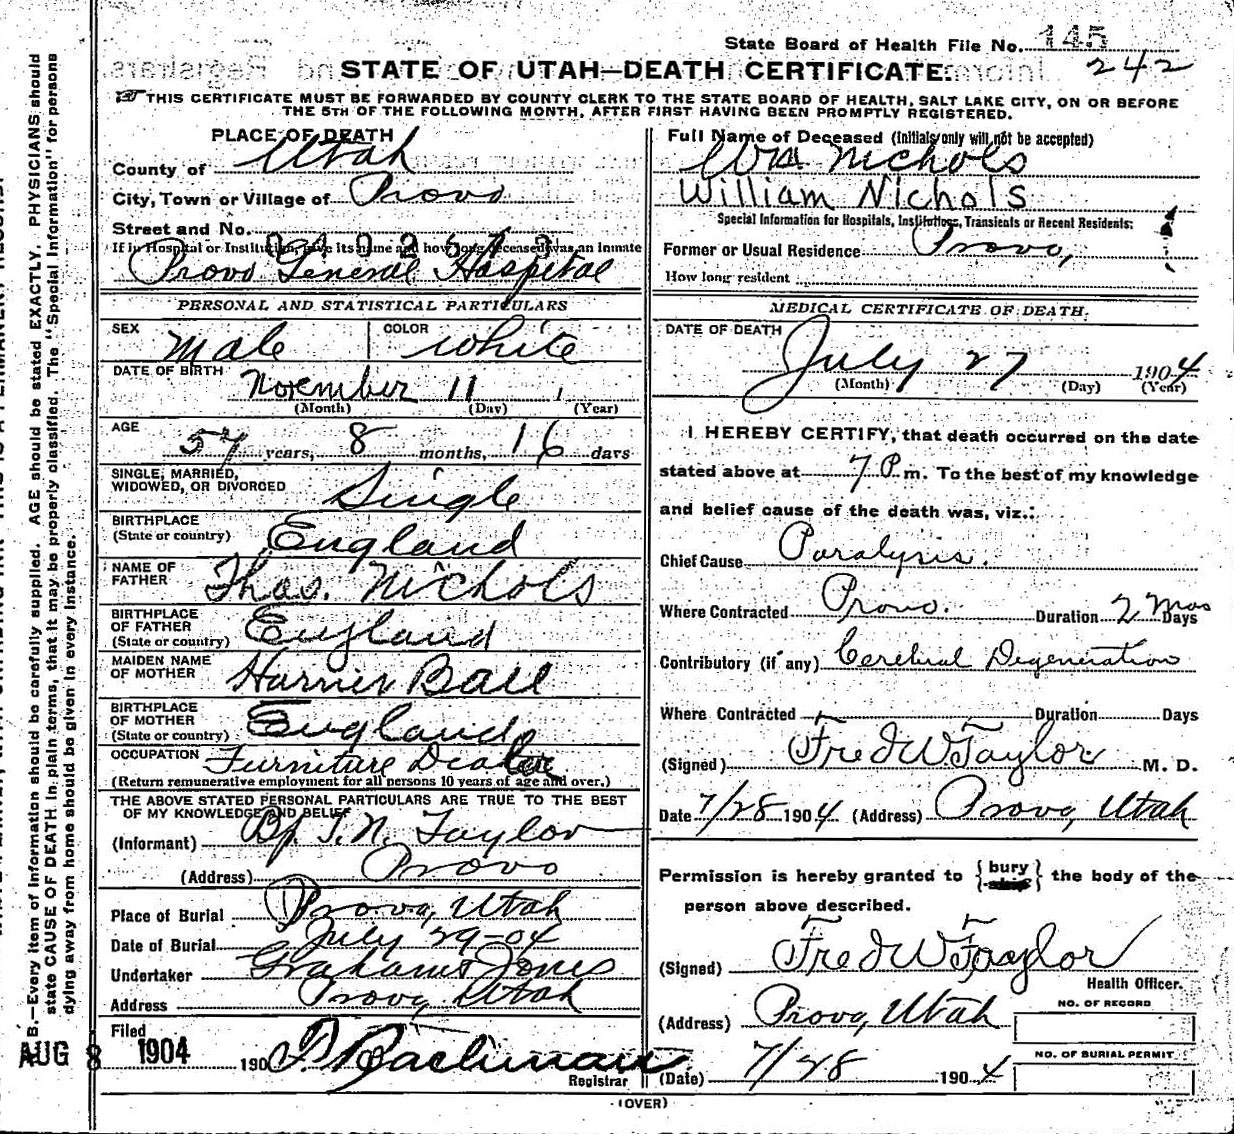 State Board of Health File No. 145
242
STATE OF UTAH—DEATH CERTIFICATE.
THIS CERTIFICATE MUST BE FORWARDED BY COUNTY CLERK TO THE STATE BOARD OF HEALTH, SALT LAKE CITY, ON OR BEFORE
THE 5TH OF THE FOLLOWING MONTH, AFTER FIRST HAVING BEEN PROMPTLY REGISTERED.
PLACE OF DEATH
County of Utah
City, Town or Village of Provo
Street and No.
If in Hospital or Institution, give its name and how long deceased was an inmate
Provo General Hospital
PERSONAL AND STATISTICAL PARTICULARS
SEX Male COLOR White
DATE OF BIRTH November 11
(Month) (Day) (Year)
AGE 57 years, 8 months, 16 days
SINGLE, MARRIED,
WIDOWED, OR DIVORCED Single
BIRTHPLACE
(State or country) England
NAME OF
FATHER Thos. Nichols
BIRTHPLACE
OF FATHER
(State or country) England
MAIDEN NAME
OF MOTHER Ball
BIRTHPLACE
OF MOTHER
(State or country) England
OCCUPATION Furniture Dealer
(Return remunerative employment for all persons 10 years of age and over.)
THE ABOVE STATED PERSONAL PARTICULARS ARE TRUE TO THE BEST
OF MY KNOWLEDGE AND BELIEF
(Informant) Bp. T. N. Taylor
(Address) Provo
Place of Burial Provo, Utah
Date of Burial July 29-04
Undertaker Graham & Jones
Address Provo, Utah
Filed
AUG 8 1904 190
Registrar
Full Name of Deceased (Initials only will not be accepted)
Wm Nichols
William Nichols
Special Information for Hospitals, Institutions, Transients or Recent Residents:
Former or Usual Residence Provo,
How long resident
MEDICAL CERTIFICATE OF DEATH.
DATE OF DEATH
July 27 1904
(Month) (Day) (Year)
I HEREBY CERTIFY, that death occurred on the date
stated above at 7 P. m. To the best of my knowledge
and belief cause of the death was, viz.:
Chief Cause Paralysis.
Where Contracted Provo. Duration 2 Mos Days
Contributory (if any) Cerebral Degeneration
Where Contracted Duration Days
(Signed) Fred W Taylor M. D.
Date 7/28 1904 (Address) Provo, Utah
Permission is hereby granted to {bury} the body of the
person above described.
(Signed) Fred W Taylor
Health Officer.
(Address) Provo, Utah
NO. OF RECORD
NO. OF BURIAL PERMIT
(Date) 7/28 1904
(OVER)
B.—Every item of Information should be carefully supplied. AGE should be stated EXACTLY. PHYSICIANS should
state CAUSE OF DEATH in plain terms, that it may be properly classified. The "Special Information" for persons
dying away from home should be given in every instance.